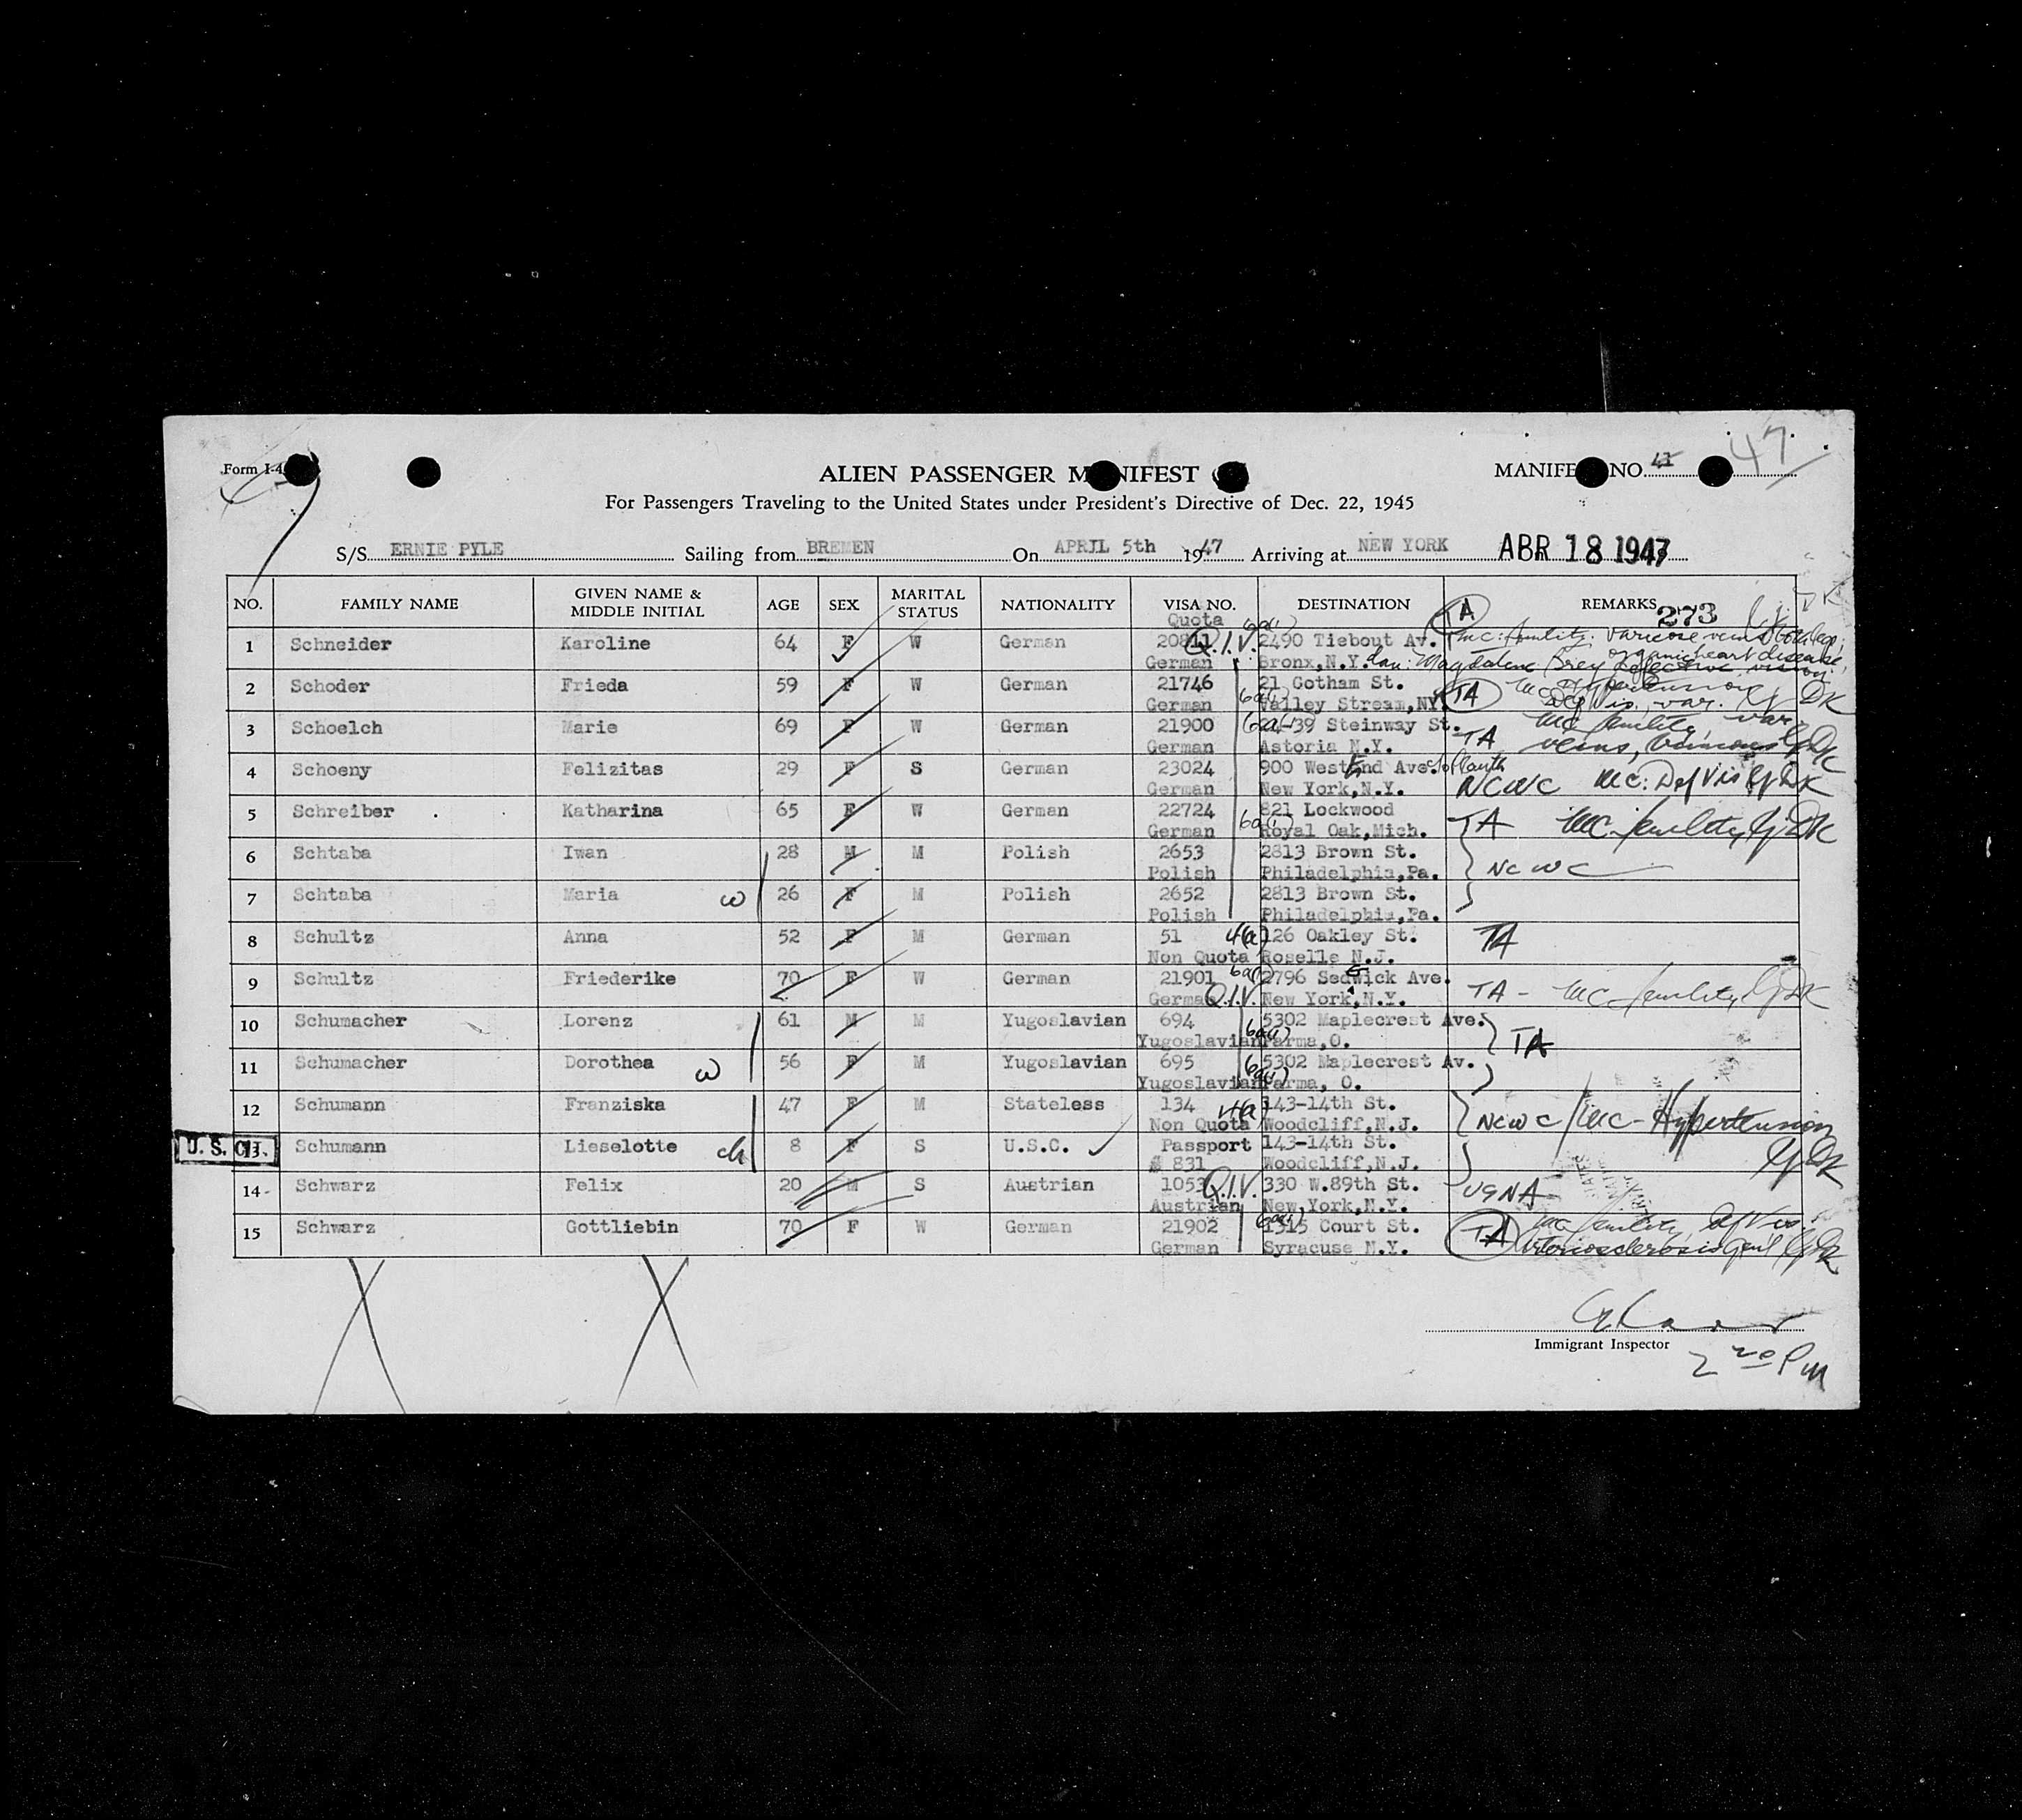 Form I-4
ALIEN PASSENGER M NIFEST
MANIFE NO. 47
For Passengers Traveling to the United States under President's Directive of Dec. 22, 1945
S/S ERNIE PYLE Sailing from BREMEN On APRIL 5th 1947 Arriving at NEW YORK APR 18 1947
NO. FAMILY NAME GIVEN NAME & MIDDLE INITIAL AGE SEX MARITAL STATUS NATIONALITY VISA NO. DESTINATION REMARKS 273
Quota
1 Schneider Karoline 64 F W German 20841 Q.I.V. 2490 Tiebout Av. TA mc: senility. varicose veins both legs,
German Bronx, N.Y. dau: Magdalene Frey organic heart disease, defective vision.
2 Schoder Frieda 59 F W German 21746 21 Gotham St. TA mc Hypertension
German 6a(1) Valley Stream, NY. Def Vis. var. DK
3 Schoelch Marie 69 F W German 21900 6a(1) 24-39 Steinway St. mc senility, var.
German Astoria N.Y. TA veins, DK
4 Schoeny Felizitas 29 F S German 23024 900 West End Ave.
German New York, N.Y. NCWC mc: Def Vis DK
5 Schreiber Katharina 65 F W German 22724 821 Lockwood
German 6a(1) Royal Oak, Mich. TA mc senility DK
6 Schtaba Iwan 28 M M Polish 2653 2813 Brown St.
Polish Philadelphia, Pa. NCWC
7 Schtaba Maria w 26 F M Polish 2652 2813 Brown St.
Polish Philadelphia, Pa.
8 Schultz Anna 52 F M German 51 4(a) 126 Oakley St. TA
Non Quota Roselle N.J.
9 Schultz Friederike 70 F W German 21901 6a(1) 2796 Sedwick Ave. G
German Q.I.V. New York, N.Y. TA - mc senility DK
10 Schumacher Lorenz 61 M M Yugoslavian 694 5302 Maplecrest Ave.
Yugoslavian 6a(1) Parma, O. TA
11 Schumacher Dorothea w 56 F M Yugoslavian 695 5302 Maplecrest Av.
Yugoslavian 6a(1) Parma, O.
12 Schumann Franziska 47 F M Stateless 134 4(a) 143-14th St.
Non Quota Woodcliff, N.J. NCWC / mc - Hypertension
U. S. C. 13 Schumann Lieselotte ch 8 F S U.S.C. Passport 143-14th St.
# 831 Woodcliff, N.J. DK
14 Schwarz Felix 20 M S Austrian 1053 Q.I.V. 330 W.89th St. USNA
Austrian New York, N.Y.
15 Schwarz Gottliebin 70 F W German 21902 6a(1) 1315 Court St. TA mc senility, Def Vis.
German Syracuse N.Y. Arteriosclerosis Gen'l DK
Immigrant Inspector
2 20 PM